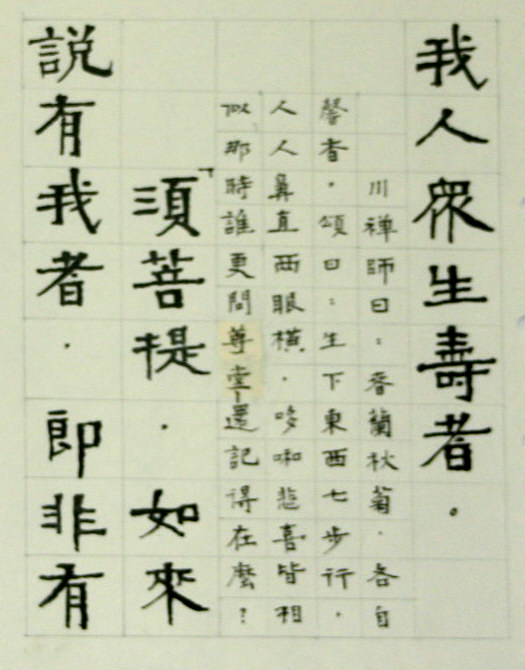 我人衆生壽者。
川禅師曰：春蘭秋菊．各自
馨香．頌曰：生下東西七步行．
人人鼻直両眼横．哆啝悲喜皆相
似那時誰更問尊堂還記得在麼？
「須菩提．如來
說有我者．即非有